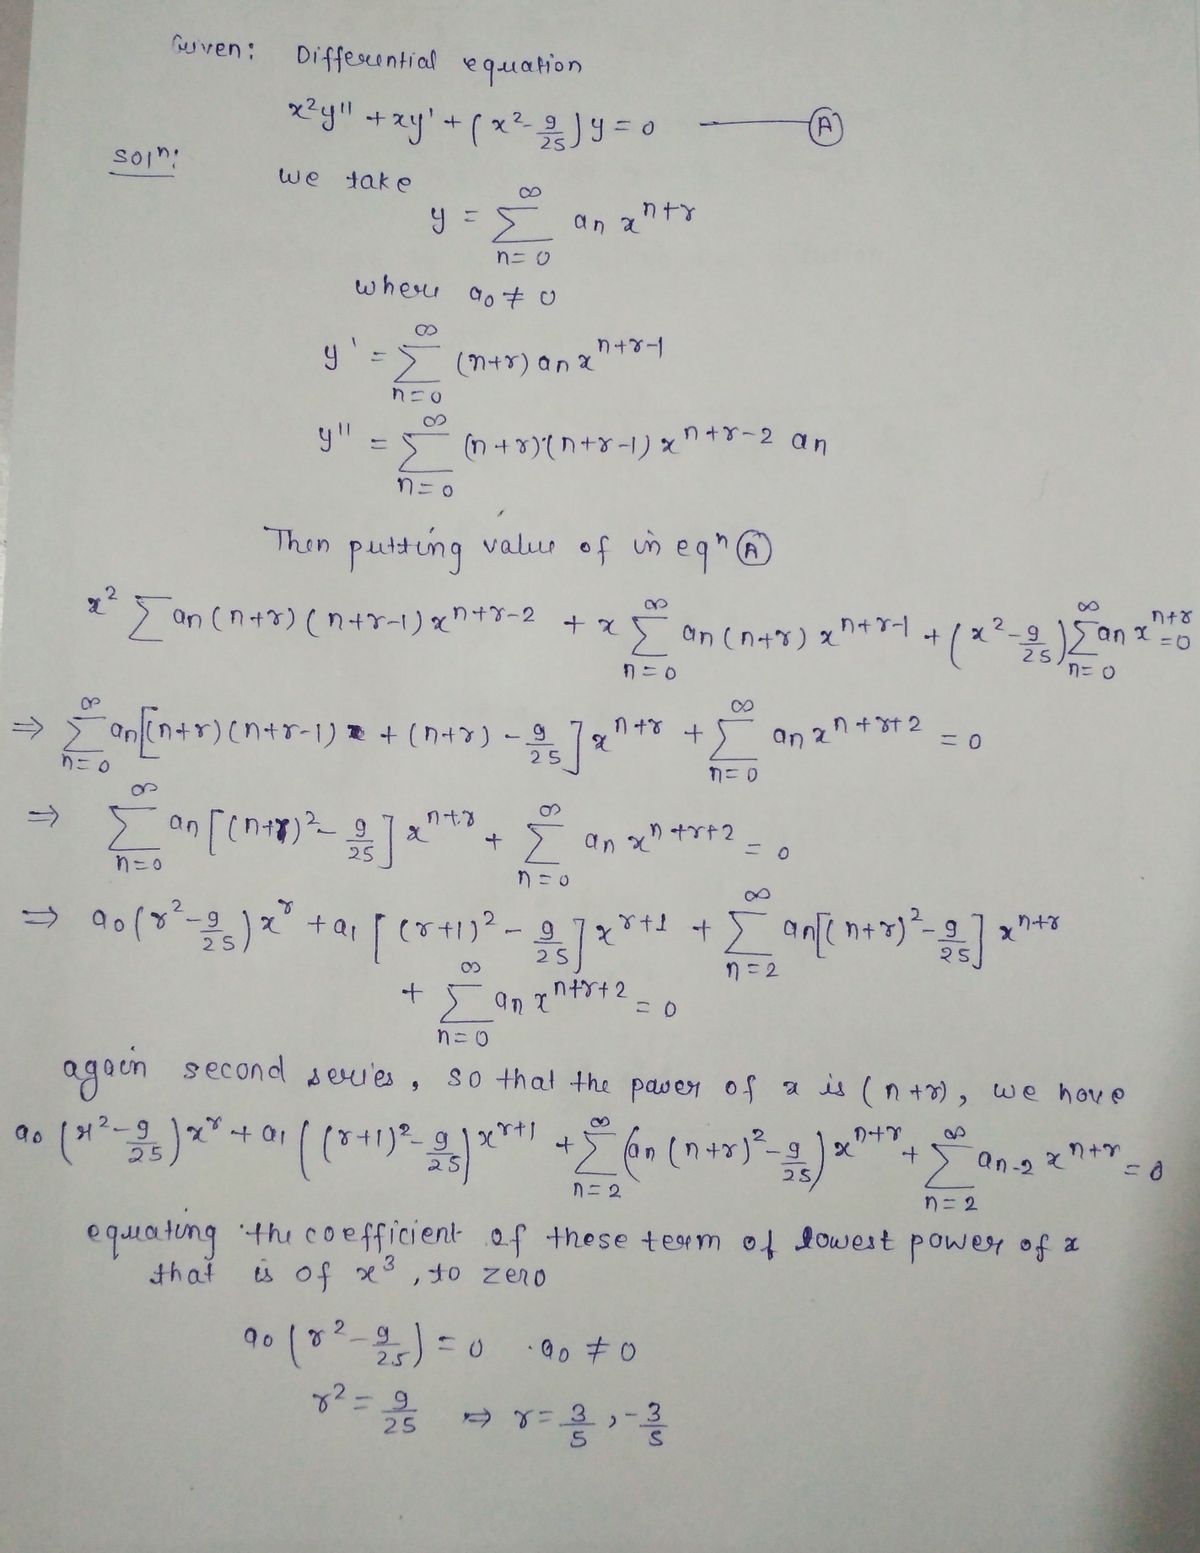 Given: Differential equation
x²y'' + xy' + (x² - 9/25) y = 0 —— Ⓐ
Solⁿ:
we take
y = ∑_{n=0}^{∞} aₙ x^{n+r}
where a₀ ≠ 0
y' = ∑_{n=0}^{∞} (n+r) aₙ x^{n+r-1}
y'' = ∑_{n=0}^{∞} (n+r)(n+r-1) x^{n+r-2} aₙ
Then putting value of in eqⁿ Ⓐ
x² ∑ aₙ (n+r) (n+r-1) x^{n+r-2} + x ∑_{n=0}^{∞} aₙ (n+r) x^{n+r-1} + (x² - 9/25) ∑_{n=0}^{∞} aₙ x^{n+r} = 0
⇒ ∑_{n=0}^{∞} aₙ [(n+r) (n+r-1) + (n+r) - 9/25] x^{n+r} + ∑_{n=0}^{∞} aₙ x^{n+r+2} = 0
⇒ ∑_{n=0}^{∞} aₙ [(n+r)² - 9/25] x^{n+r} + ∑_{n=0}^{∞} aₙ x^{n+r+2} = 0
⇒ a₀ (r² - 9/25) x^r + a₁ [(r+1)² - 9/25] x^{r+1} + ∑_{n=2}^{∞} aₙ [(n+r)² - 9/25] x^{n+r}
+ ∑_{n=0}^{∞} aₙ x^{n+r+2} = 0
again second series, so that the power of x is (n+r), we have
a₀ (r² - 9/25) x^r + a₁ ((r+1)² - 9/25) x^{r+1} + ∑_{n=2}^{∞} (aₙ (n+r)² - 9/25) x^{n+r} + ∑_{n=2}^{∞} a_{n-2} x^{n+r} = 0
equating the coefficient of these term of lowest power of x
that is of x³, to zero
a₀ (r² - 9/25) = 0 · a₀ ≠ 0
r² = 9/25 ⇒ r = 3/5, -3/5